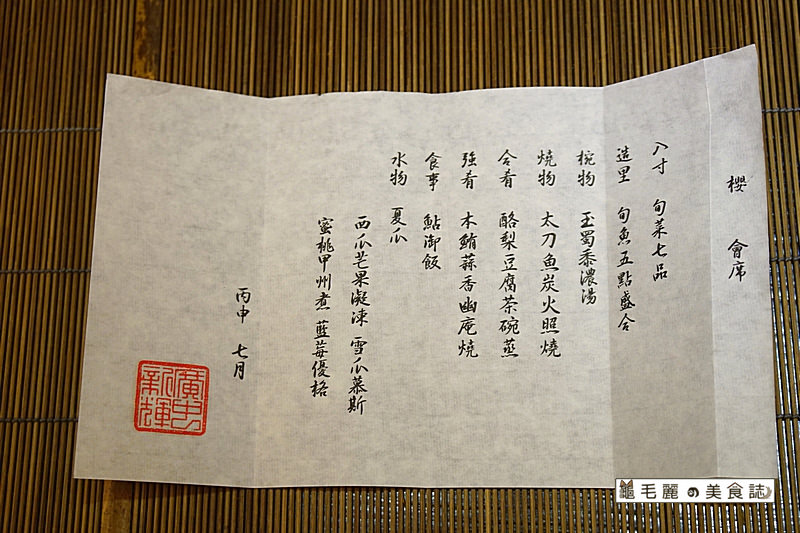 櫻 會席
八寸 旬菜七品
造里 旬魚五點盛合
椀物 玉蜀黍濃湯
燒物 太刀魚炭火照燒
合肴 酪梨豆腐茶碗蒸
強肴 本鮪蒜香幽庵燒
食事 鮎御飯
水物 夏瓜
西瓜芒果凝凍 雪瓜慕斯
蜜桃甲州煮 藍莓優格
丙申 七月
毛麗の美食誌